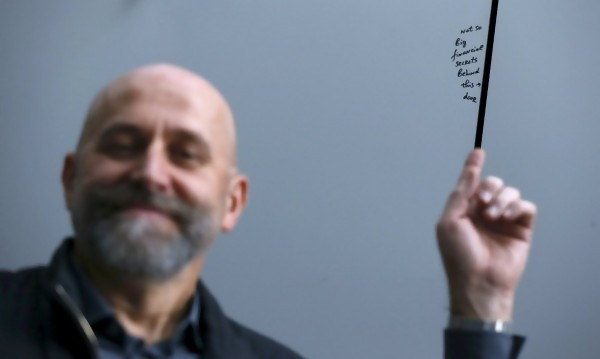 not so
Big
financial
secrets
Behind
this →
door